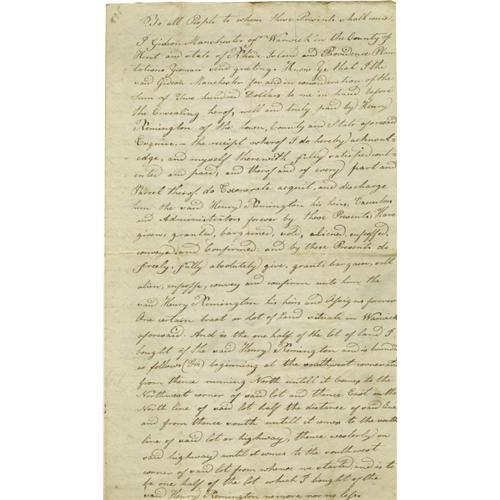 To all People to whom these Presents shall come
I Gideon Manchester of Warwick in the County of
Kent and State of Rhode Island and Providence Plan
tations Yeoman send greeting. Know Ye that I the
said Gideon Manchester for and in consideration of the
Sum of Two hundred Dollars to me in hand before
the Ensealing hereof, well and truly paid by Henry
Remington of the Town, County and State aforesaid
Esquire, the receipt whereof I do hereby acknowl-
edge, and myself therewith fully satisfied cont-
ented and paid, and thereof and of every part and
Parcel thereof do Exonerate acquit, and discharge
him the said Henry Remington his heirs, Executors
and Administrators forever by these Presents, Have
given, granted, bargained, sold, aliened, enfeoffed
conveyed, and confirmed and by these Presents do
freely, fully absolutely give, grant, bargain, sell
alien, enfeoffe, convey and confirm unto him the
said Henry Remington his heirs and Assigns forever
One certain tract or lot of Land situate in Warwick
aforesaid. And is the one half of the lot of land I
bought of the said Henry Remington and is bounded
as follows beginning at the southwest corner
from thence running North untill it comes to the
Northwest corner of said lot and thence East on the
North line of said lot half the distance of said line
and from thence south untill it comes to the south
line of said lot or highway, thence westerly on
said highway untill it comes to the southwest
corner of said lot from whence we started, and is to
be one half of the lot which I bought of the
said Henry Remington no more nor no less